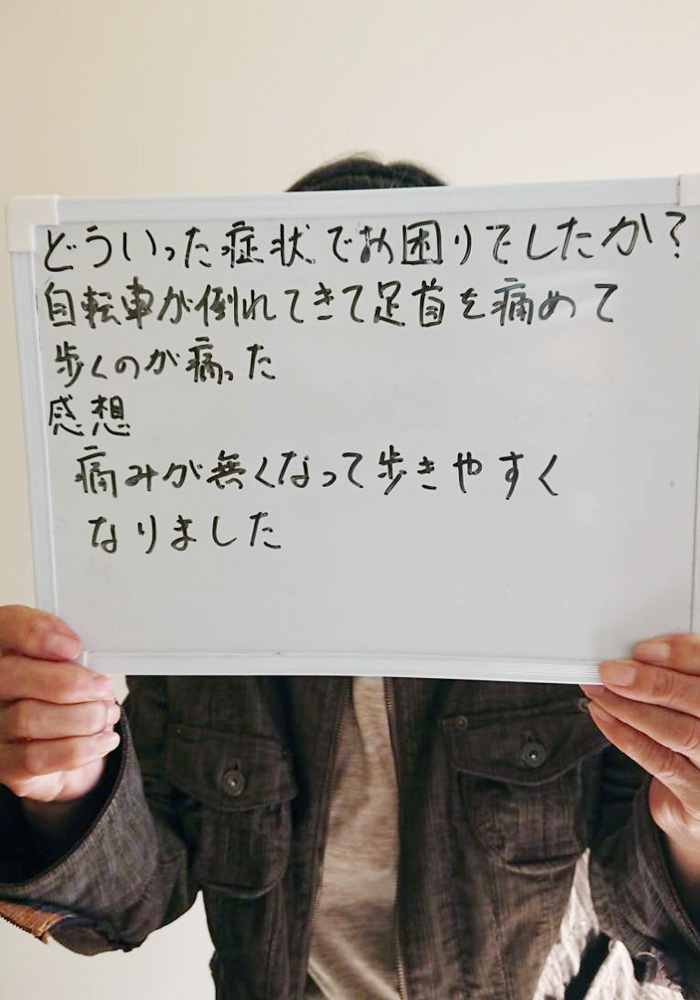 どういった症状でお困りでしたか?
自転車が倒れてきて足首を痛めて
歩くのが痛った
感想
痛みが無くなって歩きやすく
なりました